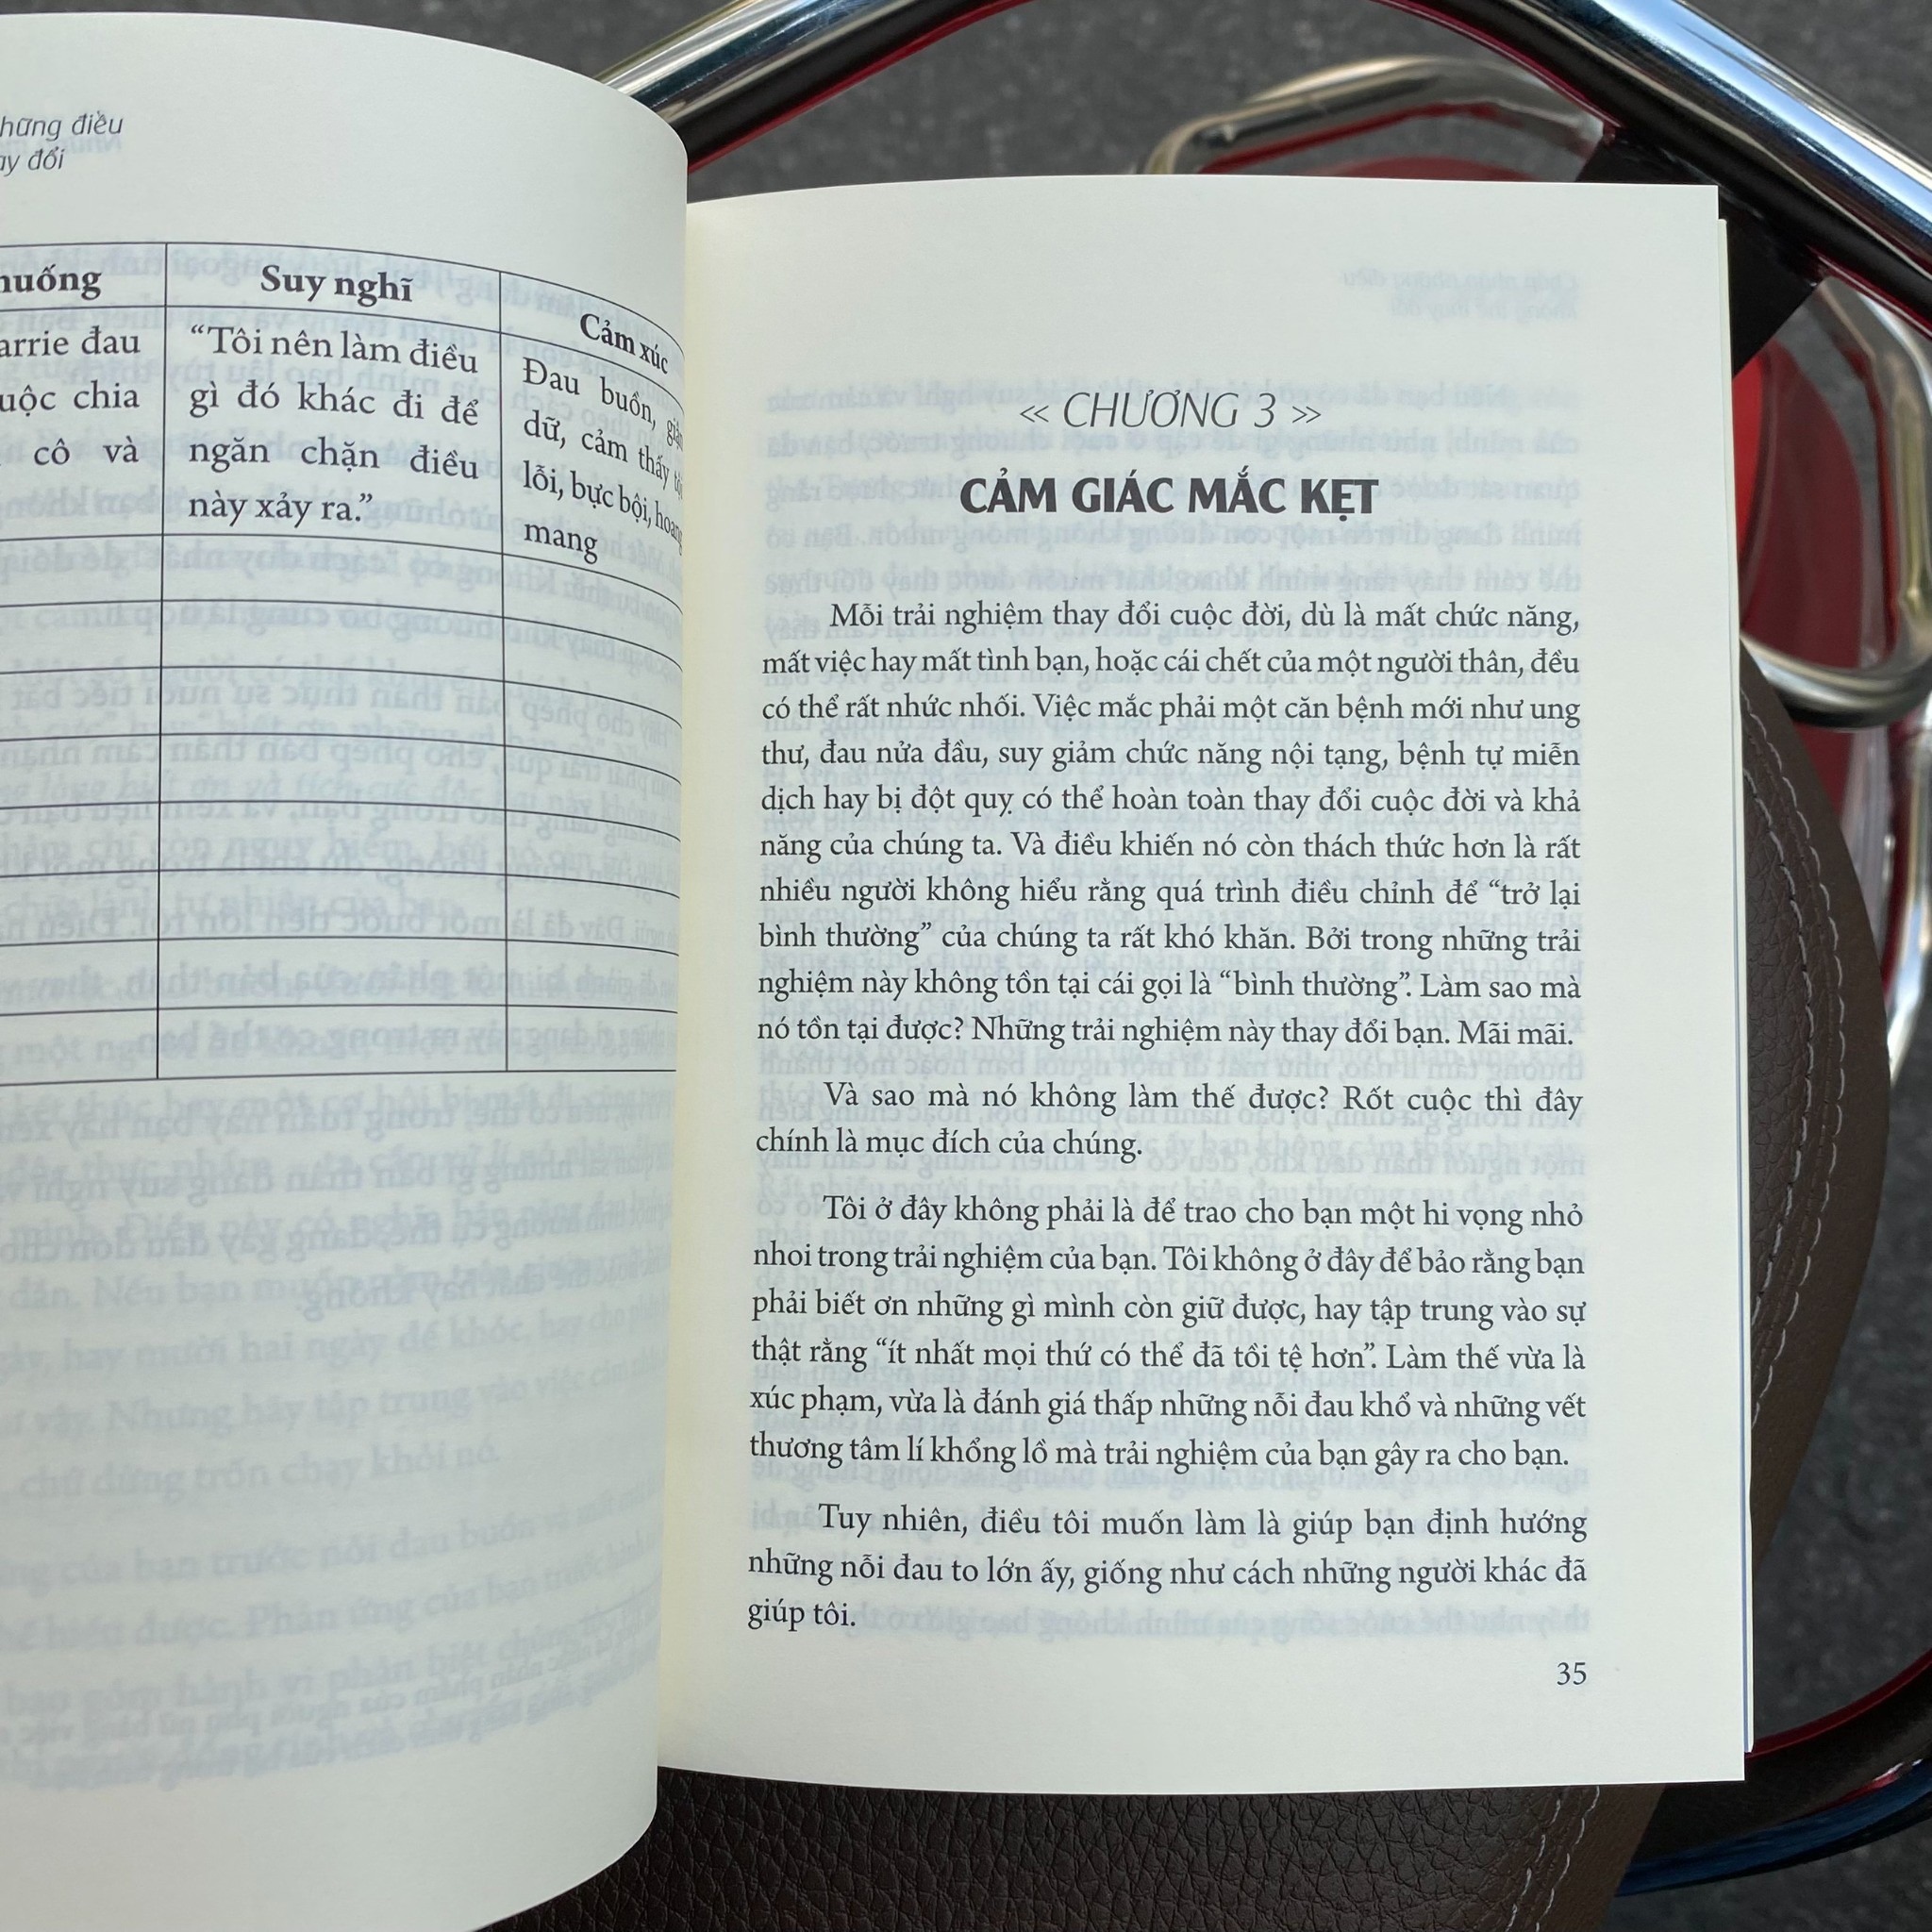 hững điều
ay đổi
huống
Suy nghĩ
Cảm xúc
arrie đau
uộc chia
cô và
“Tôi nên làm điều
gì đó khác đi để
ngăn chặn điều
này xảy ra.”
Đau buồn, giận
dữ, cảm thấy tội
lỗi, bực bội, hoang
mang
« CHƯƠNG 3 »
CẢM GIÁC MẮC KẸT
Mỗi trải nghiệm thay đổi cuộc đời, dù là mất chức năng,
mất việc hay mất tình bạn, hoặc cái chết của một người thân, đều
có thể rất nhức nhối. Việc mắc phải một căn bệnh mới như ung
thư, đau nửa đầu, suy giảm chức năng nội tạng, bệnh tự miễn
dịch hay bị đột quỵ có thể hoàn toàn thay đổi cuộc đời và khả
năng của chúng ta. Và điều khiến nó còn thách thức hơn là rất
nhiều người không hiểu rằng quá trình điều chỉnh để “trở lại
bình thường” của chúng ta rất khó khăn. Bởi trong những trải
nghiệm này không tồn tại cái gọi là “bình thường”. Làm sao mà
nó tồn tại được? Những trải nghiệm này thay đổi bạn. Mãi mãi.
Và sao mà nó không làm thế được? Rốt cuộc thì đây
chính là mục đích của chúng.
Tôi ở đây không phải là để trao cho bạn một hi vọng nhỏ
nhoi trong trải nghiệm của bạn. Tôi không ở đây để bảo rằng bạn
phải biết ơn những gì mình còn giữ được, hay tập trung vào sự
thật rằng “ít nhất mọi thứ có thể đã tồi tệ hơn”. Làm thế vừa là
xúc phạm, vừa là đánh giá thấp những nỗi đau khổ và những vết
thương tâm lí khổng lồ mà trải nghiệm của bạn gây ra cho bạn.
Tuy nhiên, điều tôi muốn làm là giúp bạn định hướng
những nỗi đau to lớn ấy, giống như cách những người khác đã
giúp tôi.
35